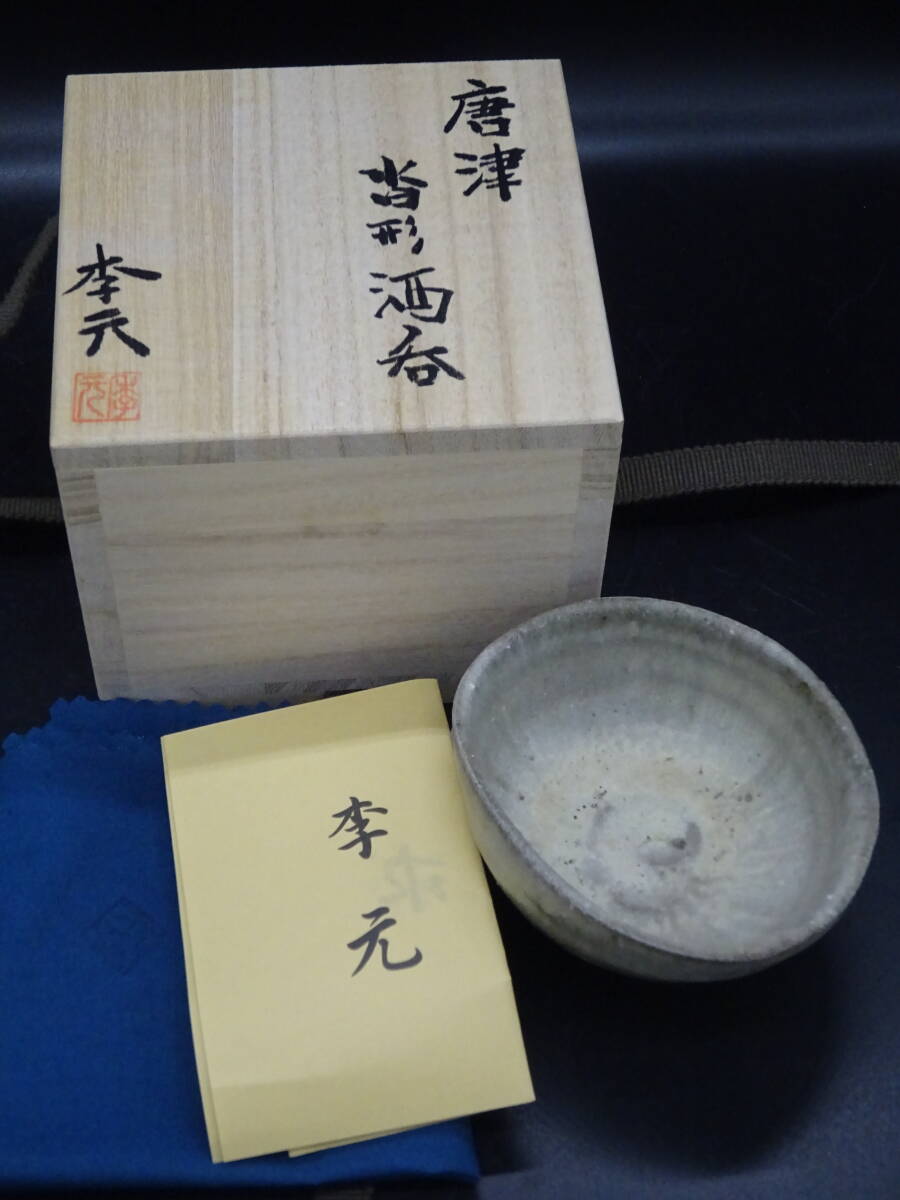 唐津
沓形酒呑
李元
李元
李元